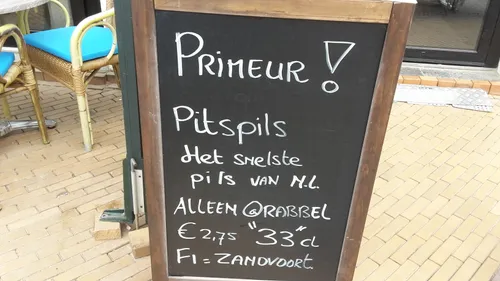 PRIMEUR!
Pitspils
Het snelste
pils van N.L.
ALLEEN @RABBEL
€ 2,75 "33" cl
F1 = ZANDVOORT.